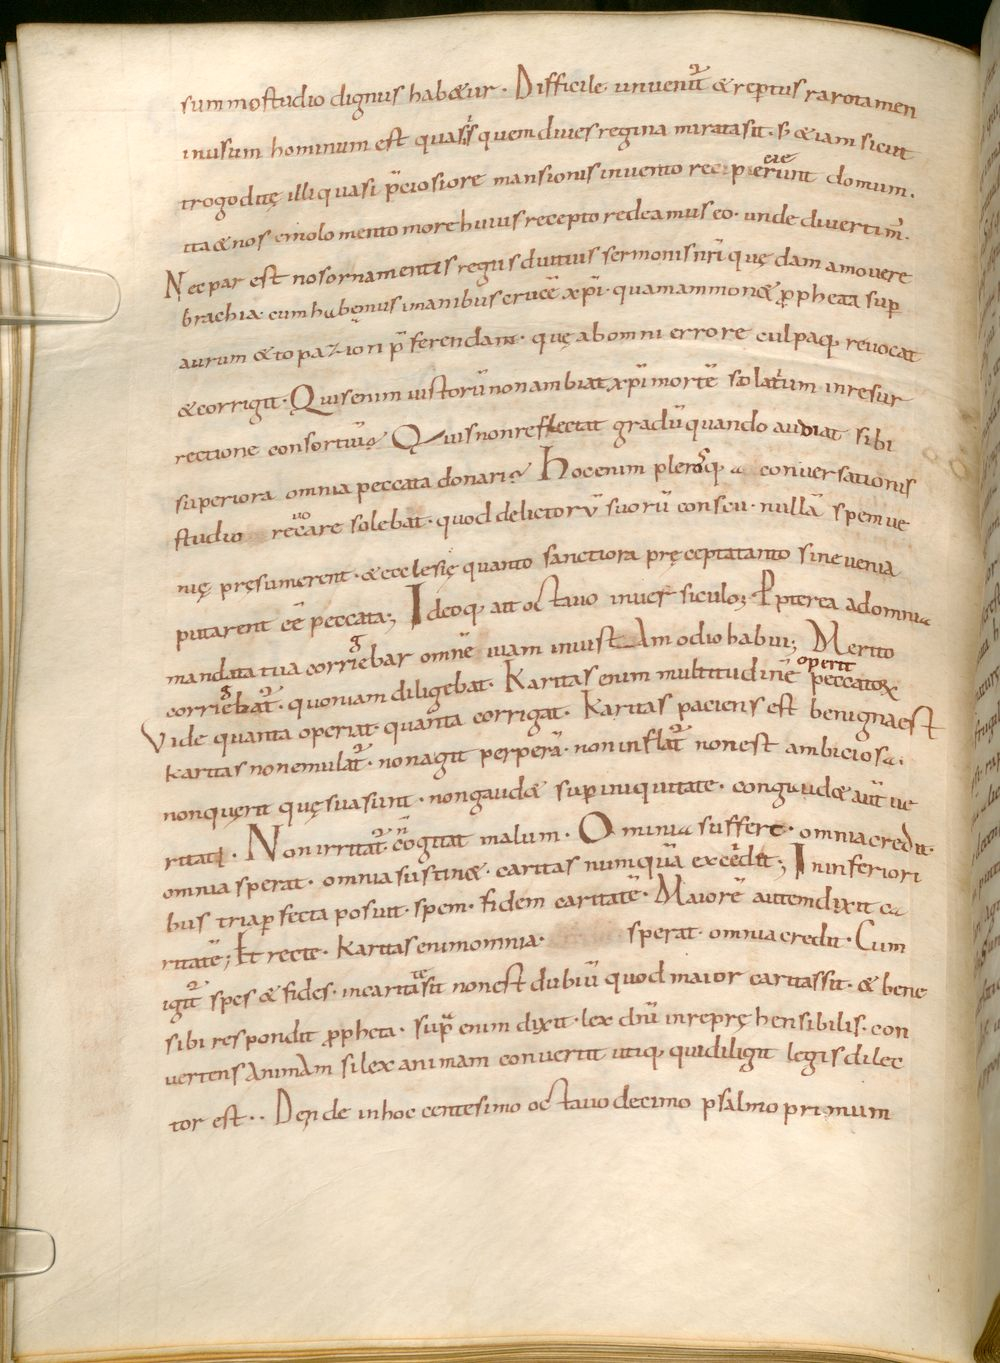 summo studio dignus hab&ur. Difficile inveniť & reptus raro tamen
in usum hominum est quasi quem dives regina mirata sit. s; &iam sicut
trogoditę illi quasi p̄ciosiore mansionis invento recipierunt domum.
ita & nos emolomento more huius recepto redeamus eo. unde divertim̄.
Nec par est nos ornamentis regiis ditius sermonis nr̄i quędam amovere
brachia. cum habęmus in manibus crucē xp̄i. quam ammon& ꝓpheta sup
aurum & topazion p̄ferendam. quę ab omni errore culpaq; revocat
& corrigit. Quis enim iustorū non ambiat xp̄i mortē solatium in resur
rectione consortiū? Quis non reflectat gradū quando audiat sibi
superiora omnia peccata donari? Hoc enim plerosq; a conversationis
studio revocare solebat. quod delictorū suorū conscii. nullā spem ve
nię pręsumerent. & ecclesię quanto sanctiora pręcepta tanto sine venia
putarent eē peccata; Ideoq; ait octavo in versiculo; Ppterea ad omnia
mandata tua corrigebar omnē viam iniustAm odio habui; Merito
corrigebať. quoniam diligebat. Karitas enim multitudinē operit peccatoꝝ
Vide quanta operiat. quanta corrigat. Karitas paciens est benigna est
karitas non emulať. non agit perperā. non inflať non est ambiciosa.
non quęrit quę sua sunt. non gaud& sup iniquitate. congaud& aūt ve
ritati. Non irritať. n̄ cogitat malum. Omnia suffert. omnia credit.
omnia sperat. omnia sustin&. caritas numquā excedit; In inferiori
bus tria pfecta posuit. spem. fidem caritatē. Maiorē autem dixit ca
ritatē; Et recte. Karitas enim omnia. sperat. omnia credit. Cum
igiť spes & fides. in caritate sit non est dubiū quod maior caritas sit. & bene
sibi respondit ꝓpheta. supra enim dixit. lex dn̄i inrepręhensibilis. con
vertens AnimAm si lex animam convertit utiq; qui diligit legis dilec
tor est.. Deinde in hoc centesimo octavo decimo psalmo primum